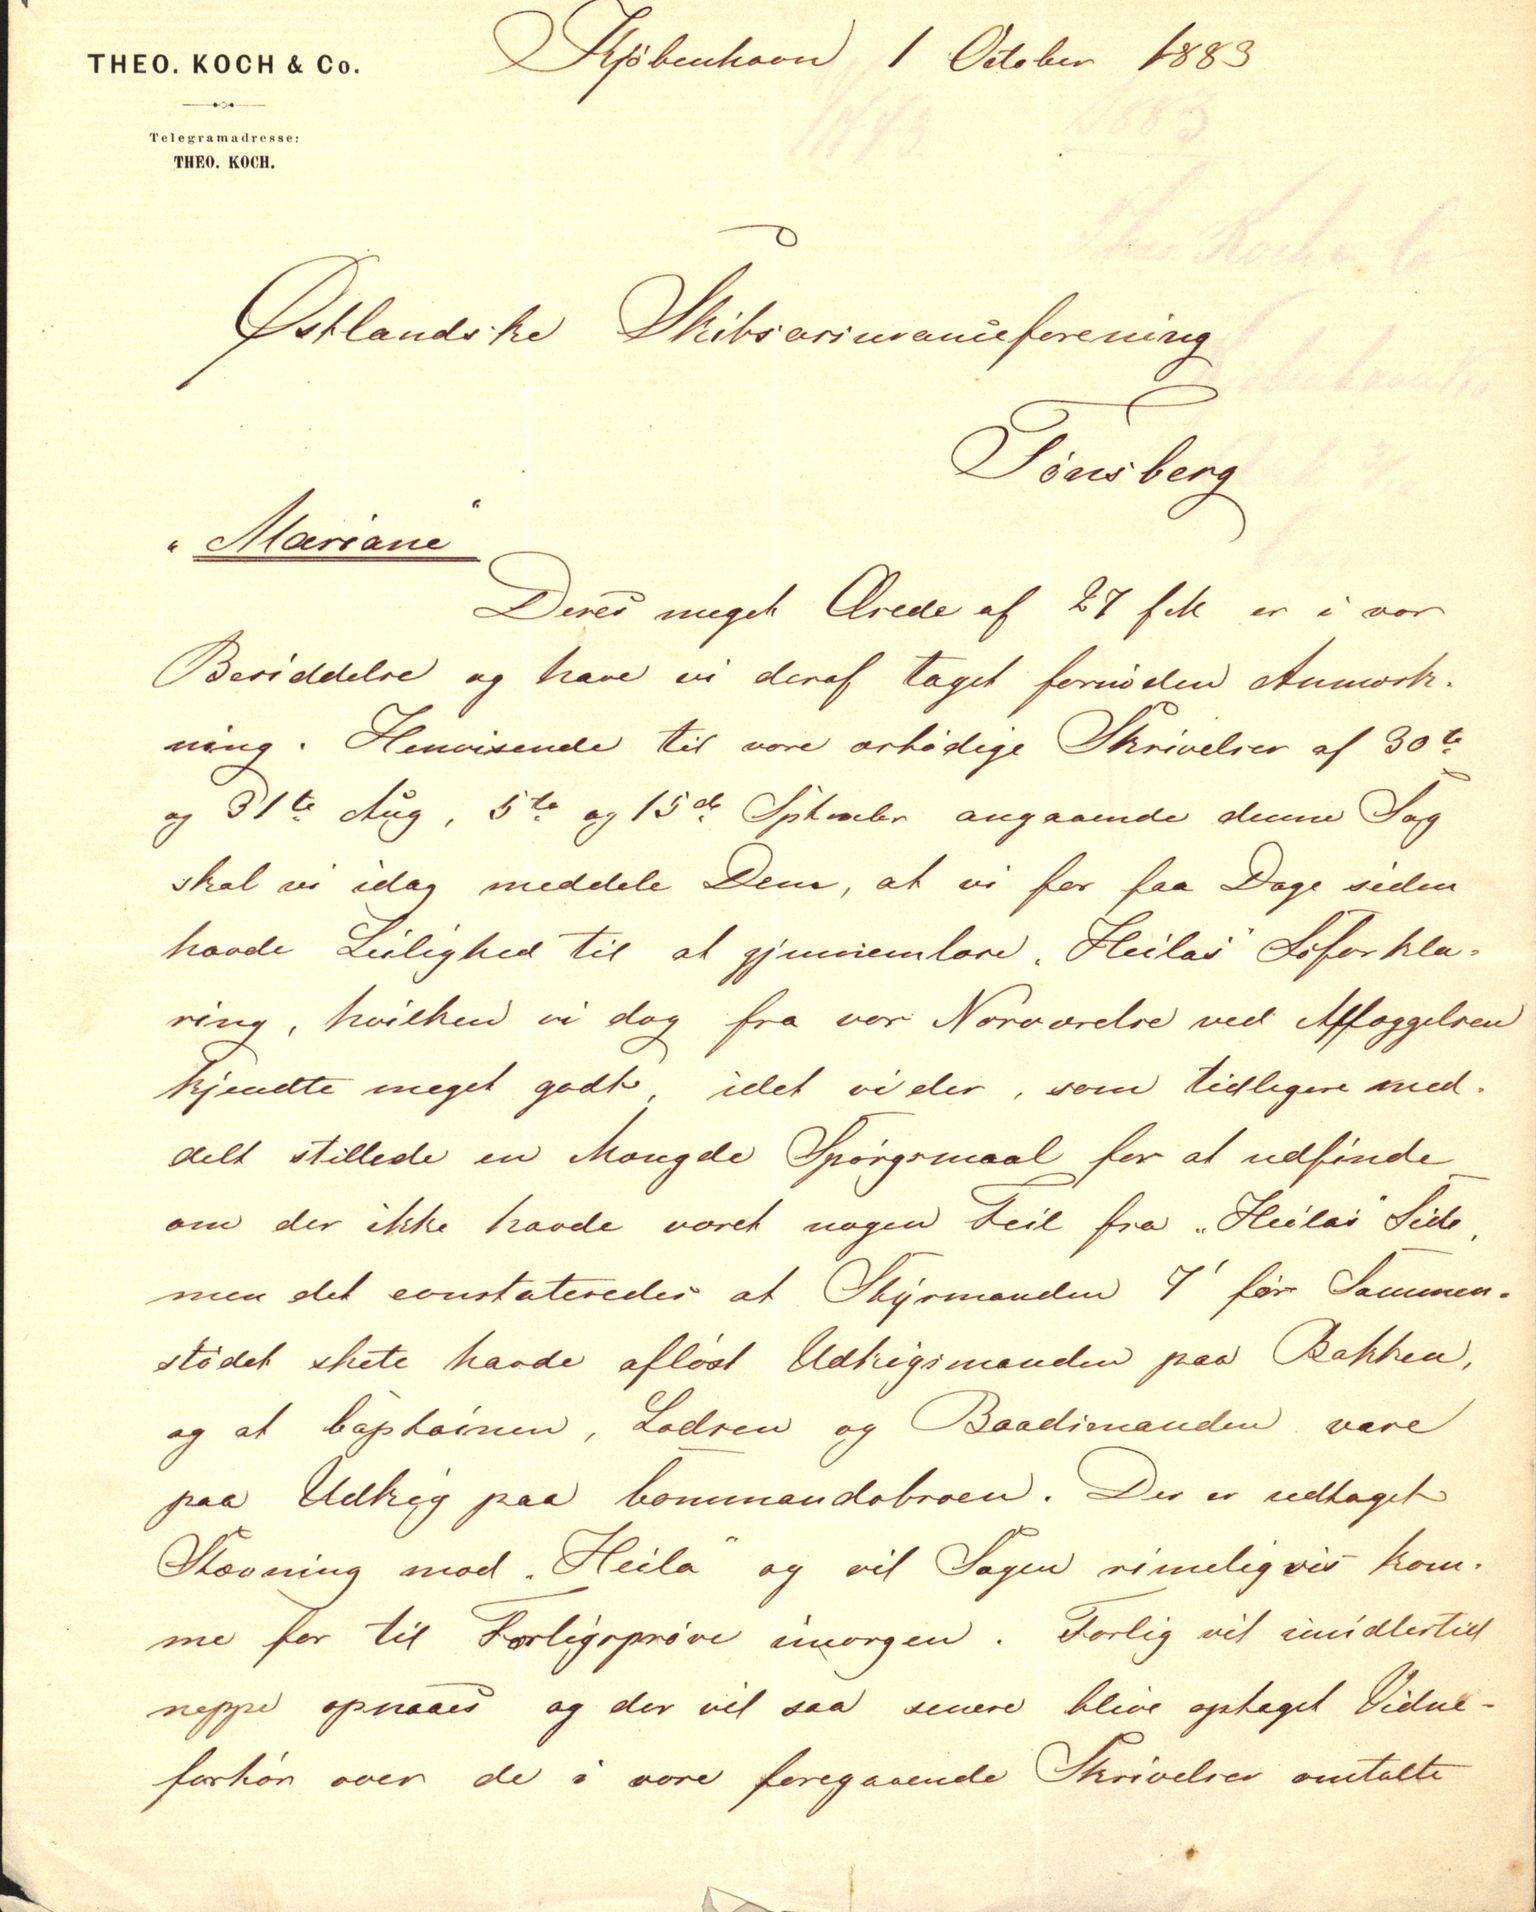 THEO. KOCH & Co.
Kjöbenhavn 1 October 1883
Telegramadresse:
THEO. KOCH.
Østlandske Skibsassuranceforening
Tönsberg
"Mariane"
Deres meget Ærede af 27 f.M. er i vor
Besiddelse og have vi deraf taget fornöden Anmærk-
ning. Henvisende til vore ærbödige Skrivelser af 30te
og 31te Aug, 5te og 15de Septmbr angaaende denne Sag
skal vi idag meddele Dem, at vi for faa Dage siden
havde Leilighed til at gjennemlæse "Heilas" Söforkla-
ring, hvilken vi dog fra vor Nærværelse ved Afläggelsen
kjendte meget godt, idet vi der, som tidligere med-
delt stillede en Mængde Spörgsmaal for at udfinde
om der ikke havde været nogen Feil fra "Heilas" Side,
men det constateredes at Styrmanden 7' för Sammen-
stödet skete havde aflöst Udkigsmanden paa Bakken,
og at Captainen, Lodsen og Baadsmanden vare
paa Udkig paa Commandobroen. Der er udtaget
Stævning mod "Heila" og vil Sagen rimeligvis kom-
me for til Forligspröve imorgen. Forlig vil imidlertid
neppe opnaaes og der vil saa senere blive optaget Vidne-
forhör over de i vore foregaaende Skrivelser omtalte